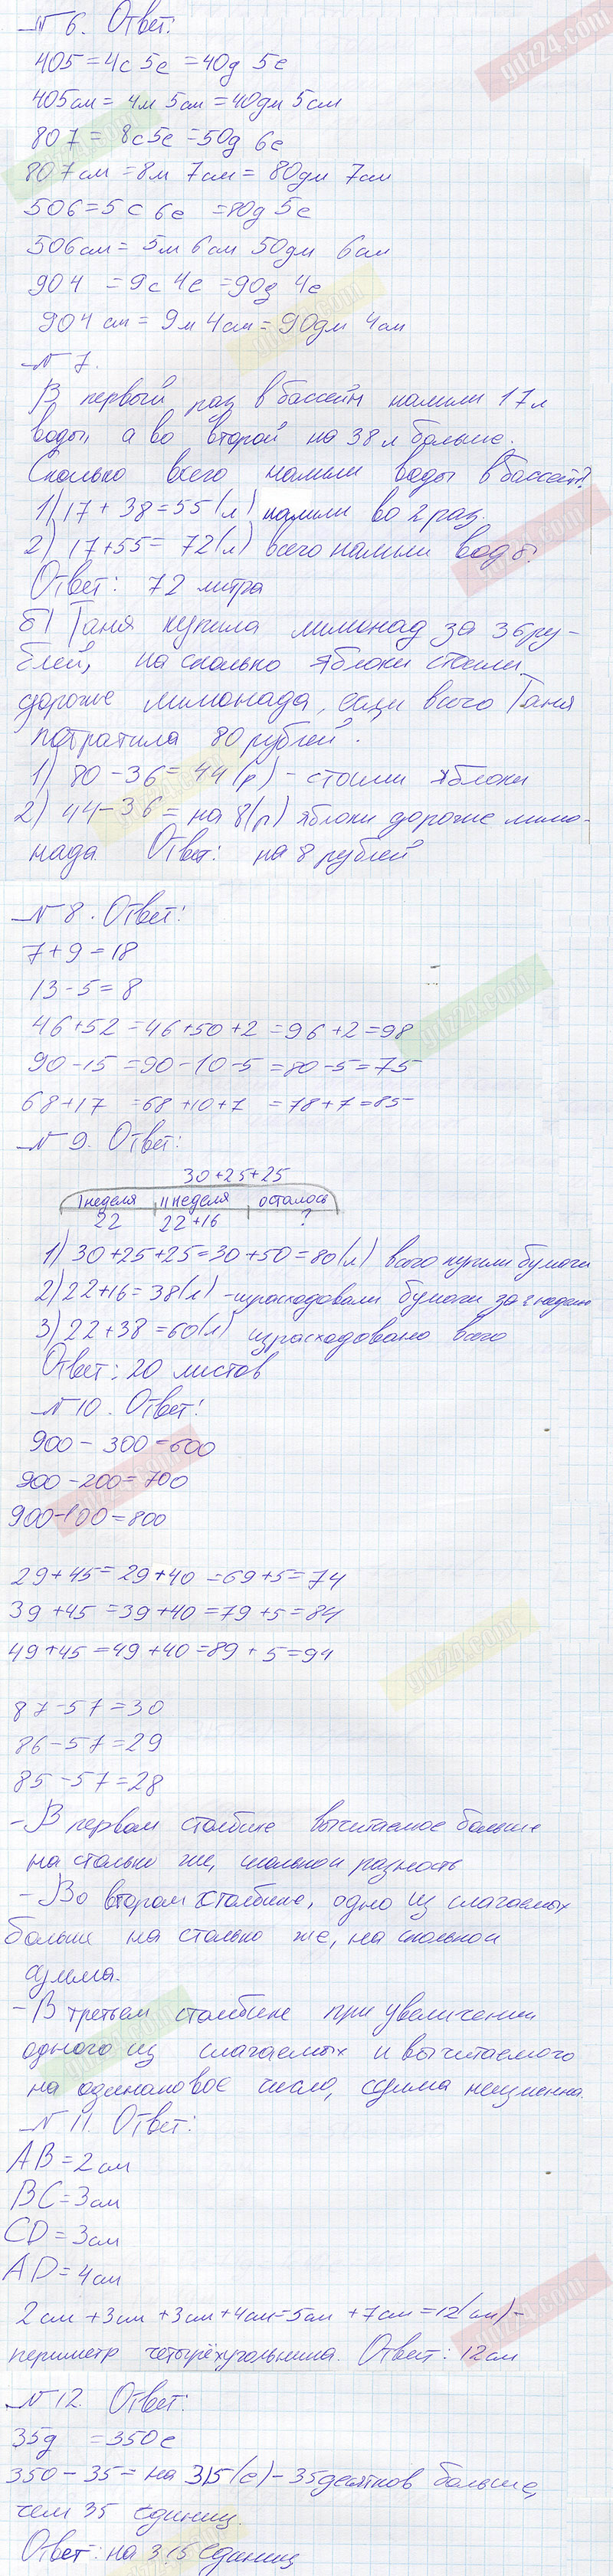 № 6. Ответ:
405 = 4с 5е = 40д 5е
405см = 4м 5см = 40дм 5см
807 = 8с 5е = 50д 6е
807см = 8м 7см = 80дм 7см
506 = 5с 6е = 80д 5е
506см = 5м 6см 50дм 6см
904 = 9с 4е = 90д 4е
904 см = 9м 4см = 90дм 4см
№ 7.
В первый раз в бассейн налили 17л
воды, а во второй на 38л больше.
Сколько всего налили воды в бассейн?
1) 17 + 38 = 55 (л) налили во 2 раз.
2) 17 + 55 = 72 (л) всего налили воды.
Ответ: 72 литра
б) Таня купила лимонад за 36 ру-
блей, на сколько яблоки стоили
дороже лимонада, если всего Таня
потратила 80 рублей.
1) 80 - 36 = 44 (р) - стоили яблоки
2) 44 - 36 = на 8 (р) яблоки дороже лимо-
нада. Ответ: на 8 рублей
№ 8. Ответ:
7 + 9 = 18
13 - 5 = 8
46 + 52 = 46 + 50 + 2 = 96 + 2 = 98
90 - 15 = 90 - 10 - 5 = 80 - 5 = 75
68 + 17 = 68 + 10 + 7 = 78 + 7 = 85
№ 9. Ответ:
30 + 25 + 25
I неделя II неделя осталось
22 22 + 16 ?
1) 30 + 25 + 25 = 30 + 50 = 80 (л) всего купили бумаги
2) 22 + 16 = 38 (л) - израсходовали бумаги за 2 неделю
3) 22 + 38 = 60 (л) израсходовано всего
Ответ: 20 листов
№ 10. Ответ:
900 - 300 = 600
900 - 200 = 700
900 - 100 = 800
29 + 45 = 29 + 40 = 69 + 5 = 74
39 + 45 = 39 + 40 = 79 + 5 = 84
49 + 45 = 49 + 40 = 89 + 5 = 94
87 - 57 = 30
86 - 57 = 29
85 - 57 = 28
- В первом столбике вычитаемое больше
на столько же, сколько и разность
- Во втором столбике, одно из слагаемых
больше на столько же, на сколько и
сумма.
- В третьем столбике при увеличении
одного из слагаемых и вычитаемого
на одинаковое число, сумма неизменна.
№ 11. Ответ:
AB = 2см
BC = 3см
CD = 3см
AD = 4см
2см + 3см + 3см + 4см = 5см + 7см = 12(см) -
периметр четырёхугольника. Ответ: 12см
№ 12. Ответ:
35д = 350е
350 - 35 = на 315 (е) - 35 десятков больше,
чем 35 единиц.
Ответ: на 315 единиц
gdz24.com